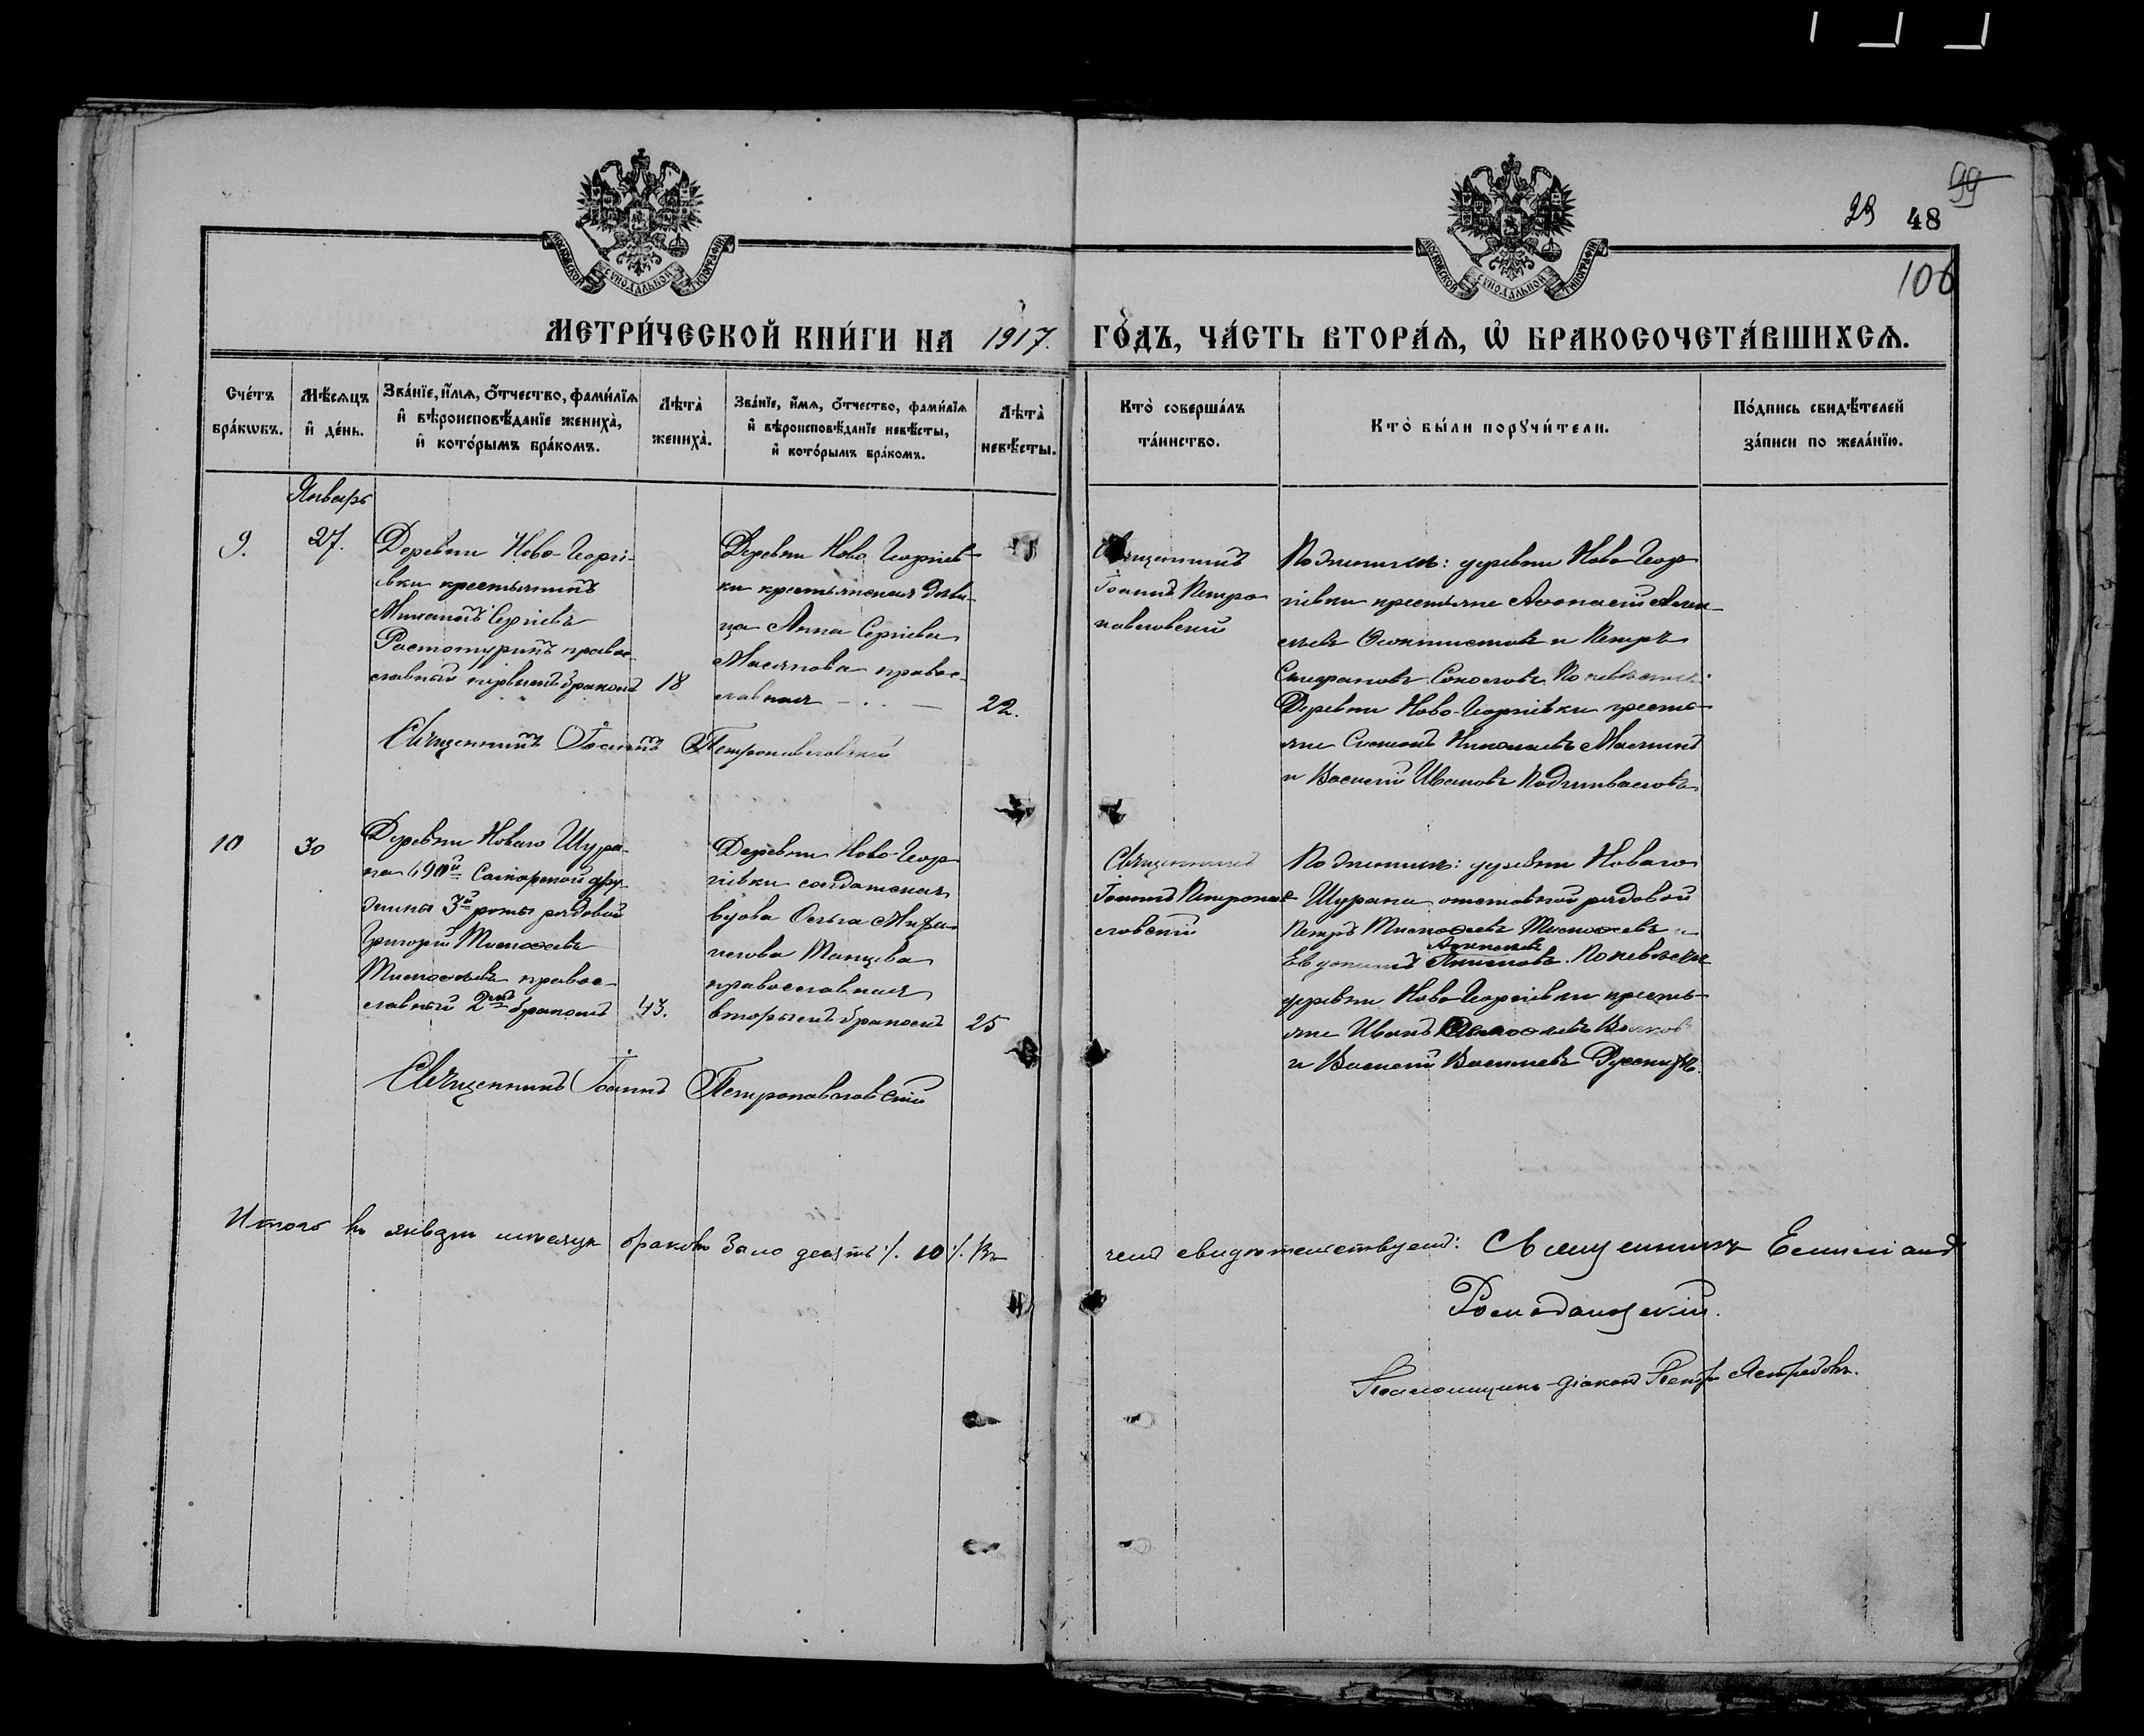 99
29 48
106
МОСКОВСКОЙ СѴНОДАЛЬНОЙ ТИПОГРАФІИ
МОСКОВСКОЙ СѴНОДАЛЬНОЙ ТИПОГРАФІИ
МЕТРИ́ЧЕСКОЙ КНИ́ГИ НА 1917. ГО́ДЪ, ЧА́СТЬ ВТОРА́Ѧ, Ѡ҆ БРАКОСОЧЕТА́ВШИХСѦ.
Сче́тъ
бра́кѡвъ.
Мѣ́сѧцъ
и҆ де́нь.
Зва́нїе, и҆́мѧ, ѻ҆́тчество, фами́лїѧ
и҆ вѣроисповѣ́данїе жениха̀,
и҆ кото́рымъ бра́комъ.
Лѣта̀
жениха̀.
Зва́нїе, и҆́мѧ, ѻ҆́тчество, фами́лїѧ
и҆ вѣроисповѣ́данїе невѣ́сты,
и҆ кото́рымъ бра́комъ.
Лѣта̀
невѣ́сты.
Кто̀ соверша́лъ
та́инство.
Кто̀ бы́ли порꙋчи́тели.
По́дпись свидѣ́телей
за́писи по жела́нїю.
Январь
9.
27.
Деревни Ново-Георгі-
евки крестьянинъ
Михаилъ Сергіевъ
Растотуринъ правос-
лавный первымъ бракомъ
18
Деревни Ново Георгіев-
ки крестьянская дѣви-
ца Анна Сергіева
Маслова правос-
лавная
22.
Священникъ
Іоаннъ Петро
павловскій
По женихѣ: деревни Ново-Геор
гіевки крестьяне Аѳонасій Алек-
сѣевъ Ѳеоктистовъ и Петръ
Стефановъ Соколовъ. По невѣстѣ:
Деревни Ново-Георгіевки кресть-
яне Симеонъ Николаевъ
и Василій Ивановъ
Священникъ Іоаннъ Петропавловскій
10
30
Деревни Новаго Шура-
на 690й Самарской дру-
жины 3й роты рядовой
Григорій Тимоѳеевъ
Тимоѳеевъ правос-
лавный 2мъ бракомъ
43.
Деревни Ново-Геор
гіевки солдатская
вдова Ольга
православная
вторымъ бракомъ
25
Священникъ
Іоаннъ Петропав-
ловскій
По женихѣ: деревни Новаго
Шурана отставной рядовой
Петръ Тимоѳеевъ Тимоѳеевъ и
Евдокимъ По невѣстѣ
деревни Ново-Георгіевки кресть-
яне Иванъ
и Василій Васильевъ
Священникъ Іоаннъ Петропавловскій
Итого въ январѣ мѣсяцѣ браковъ было десять /. 10 /. Въ чемъ свидѣтельствуемъ: Священникъ Емиліанъ
Ромодановскій.
Псаломщикъ-діаконъ Петръ Ястребовъ.